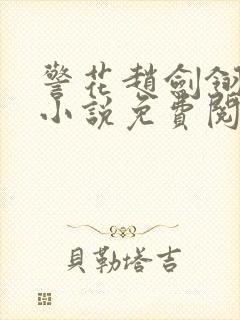 警花趙劍釵
小說免費閱
貝勒塔吉